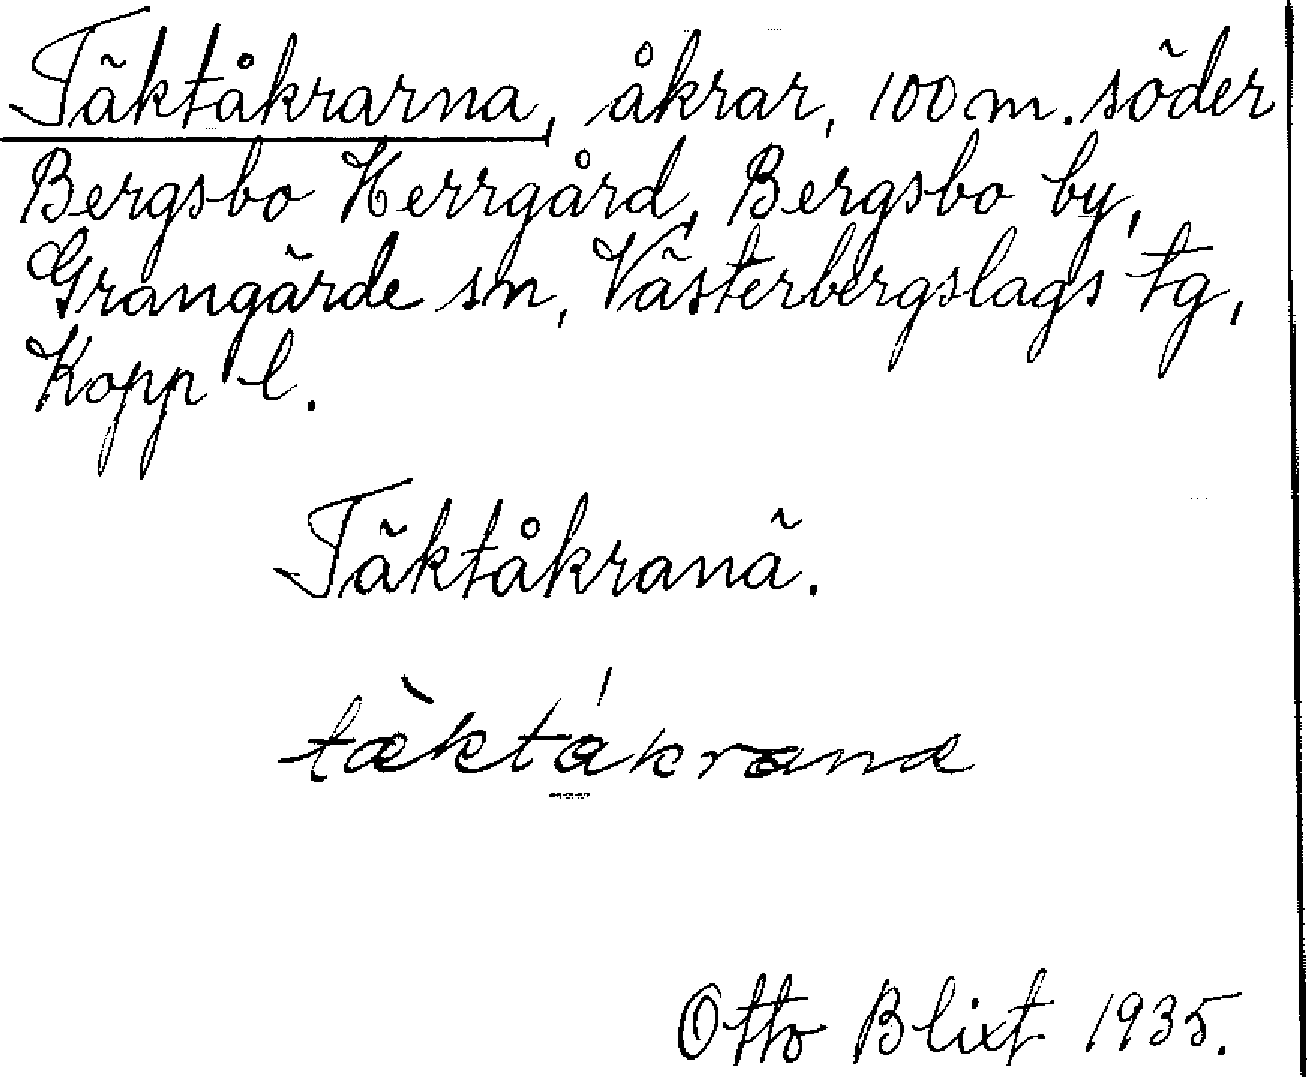 Täktåkrarna, åkrar, 100 m. söder
Bergsbo Herrgård, Bergsbo by,
Grangärde sn, Västerbergslags tg,
Kopp l.
Täktåkranä.
tæ̀ktákrana
Otto Blixt 1935.